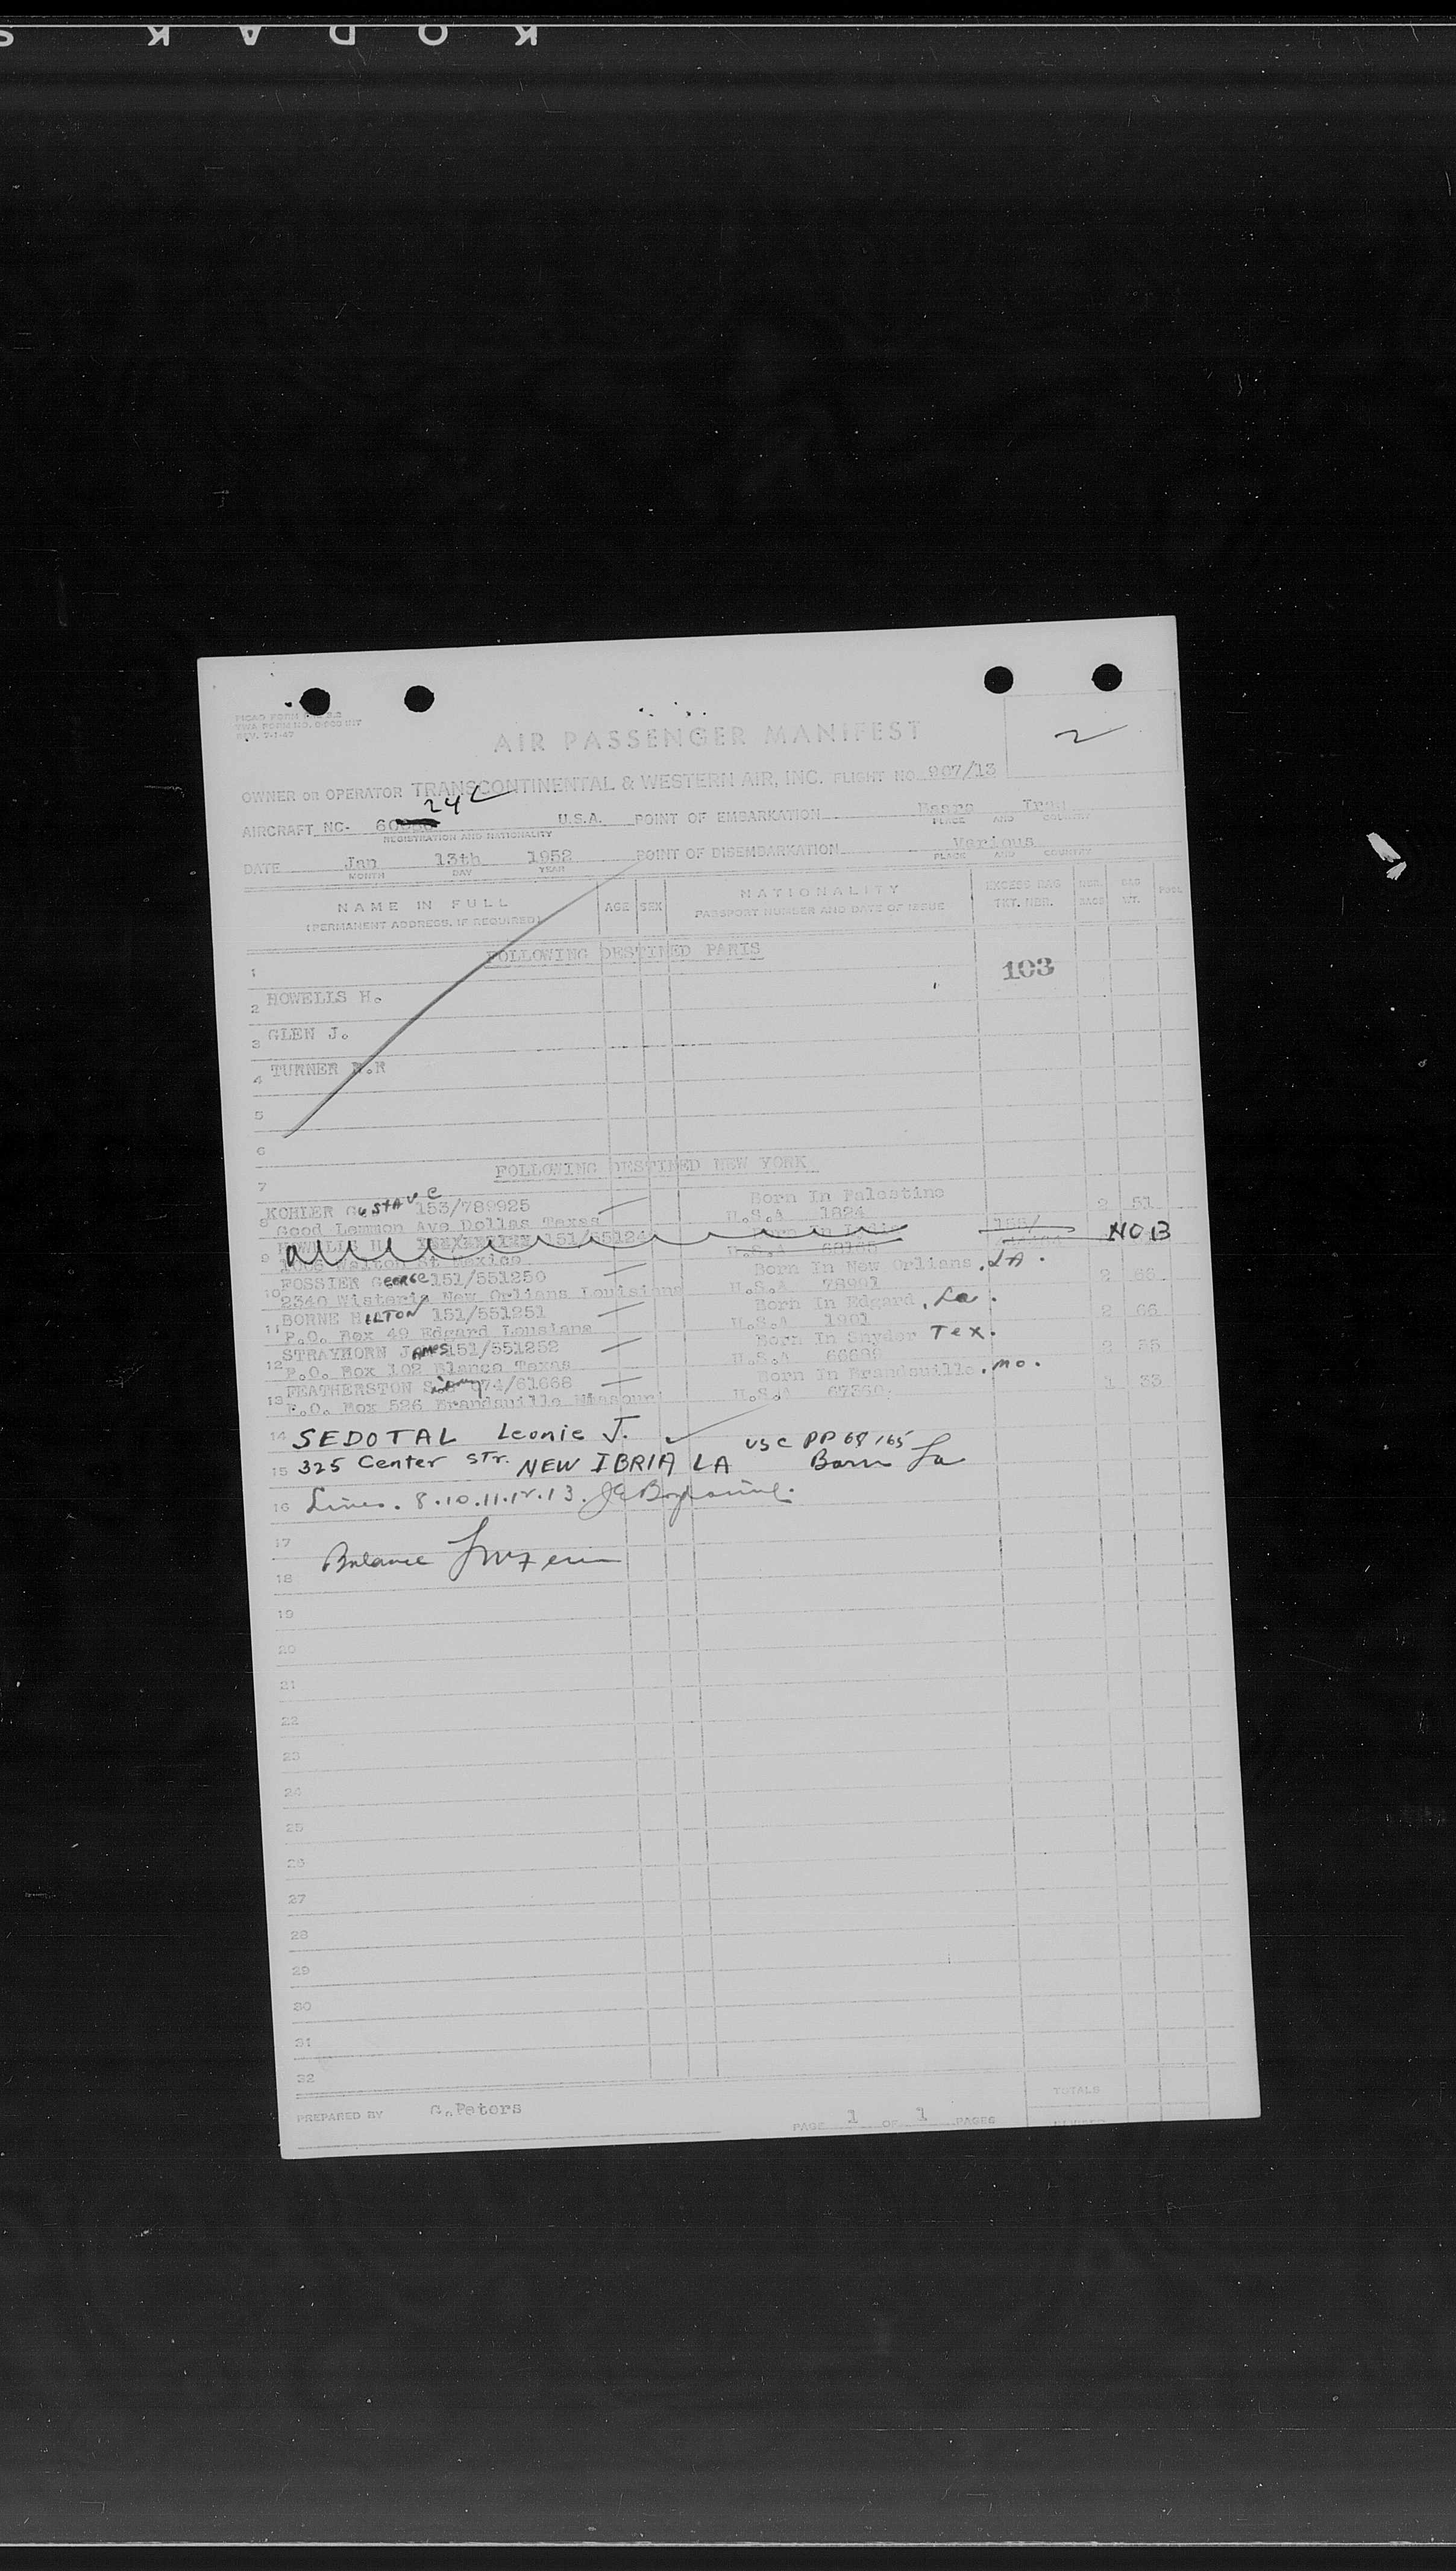 KODAK S
AIR PASSENGER MANIFEST
2
OWNER OR OPERATOR TRANSCONTINENTAL & WESTERN AIR, INC. FLIGHT NO. 967/13
24
AIRCRAFT NC- 60 U.S.A. POINT OF EMBARKATION Basra
REGISTRATION AND NATIONALITY PLACE AND COUNTRY
DATE Jan 13th 1952 POINT OF DISEMBARKATION Various
MONTH DAY YEAR PLACE AND COUNTRY
NAME IN FULL AGE SEX NATIONALITY EXCESS BAG NBR. BAG
(PERMANENT ADDRESS, IF REQUIRED) PASSPORT NUMBER AND DATE OF ISSUE TKT. NBR. BAGS WT.
1 FOLLOWING DESTINED PARIS
103
2 HOWELLS H.
3 GLEN J.
4 TURNER N.R
5
6
7 FOLLOWING DESTINED NEW YORK
8 KOHLER GUSTAVE 153/789925 Born In Palestine 2 51
Good Lemmon Ave Dollas Texas U.S.A 1824
9 151/55124 NOB
Walton St Mexico
10 FOSSIER GEORGE 151/551250 Born In New Orlians, LA. 2 66
2340 Wisteria New Orlians Louisiana U.S.A 78991
11 BORNE HILTON 151/551251 Born In Edgard, La. 2 66
P.O. Box 49 Edgard Lousiana U.S.A 1901
12 STRAYHORN JAMES 151/551252 Born In Snyder Tex. 2 55
P.O. Box 102 Blanco Texas U.S.A 66689
13 FEATHERSTON 074/61668 Born In Brandsuille, Mo. 1 33
P.O. Box 526 Brandsuille Missouri U.S.A 67360
14 SEDOTAL Leonie J. USC PP 69165
15 325 Center STr. NEW IBRIA LA Born La
16 Lines. 8.10.11.12.13.
17
18 Balance
19
20
21
22
23
24
25
26
27
28
29
30
31
32
TOTALS
PREPARED BY G.Peters PAGE 1 OF 1 PAGES